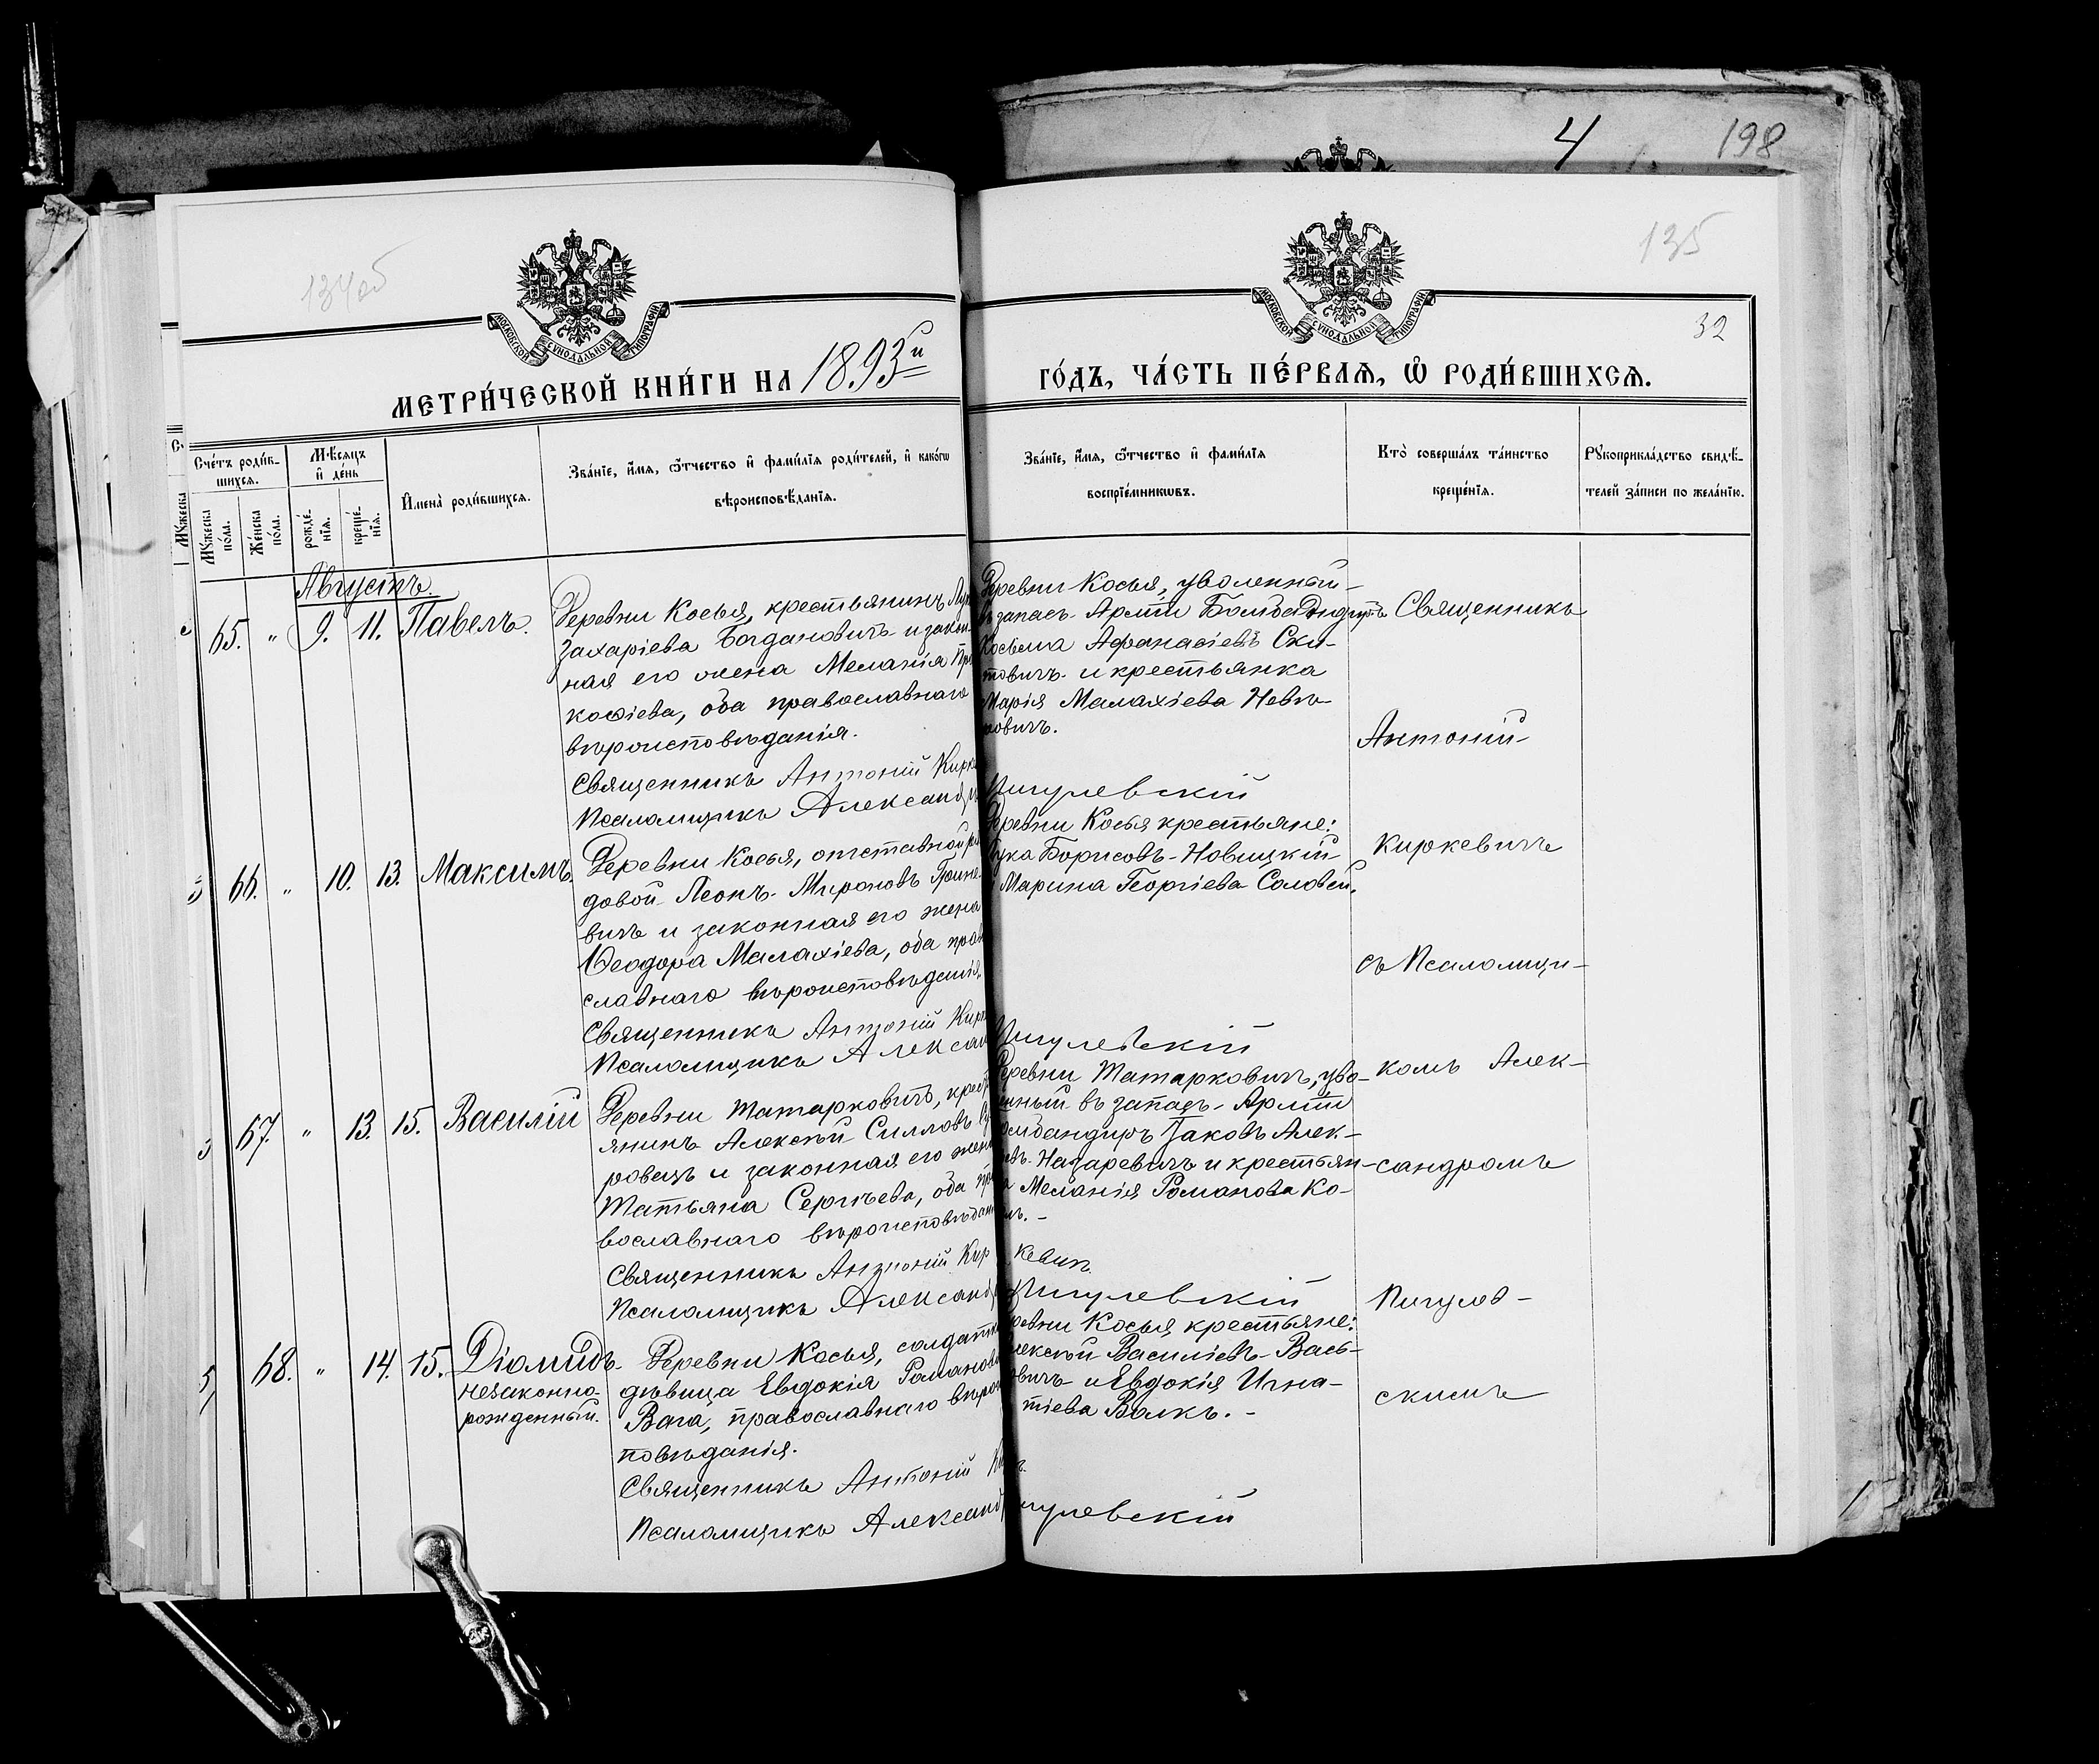 4 198
134об
135
32
МОСКОВСКОЙ СУНОДАЛЬНОЙ ТИПОГРАФІИ
МОСКОВСКОЙ СУНОДАЛЬНОЙ ТИПОГРАФІИ
МЕТРИ́ЧЕСКОЙ КНИ́ГИ НА 1893й
ГО́ДЪ, ЧА́СТЬ ПЕ́РВАѦ, Ѡ҆ РОДИ́ВШИХСѦ.
Сче́тъ роди́в-
шихсѧ.
Мꙋ́жеска по́ла.
Же́нска по́ла.
Мѣ́сѧцъ
и҆ де́нь
рожде́-
нїѧ.
креще́-
нїѧ.
И҆мена̀ роди́вшихсѧ.
Зва́нїе, и҆́мѧ, ѻ҆́тчество и҆ фами́лїѧ роди́телей, и҆ како́гѡ
вѣроисповѣ́данїѧ.
Зва́нїе, и҆́мѧ, ѻ҆́тчество и҆ фами́лїѧ
воспрїе́мникѡвъ.
Кто̀ соверша́лъ та́инство
креще́нїѧ.
Рꙋкоприкла́дство свидѣ́-
телей за́писи по жела́нїю.
Августъ.
65. " 9. 11. Павелъ.
Деревни Косья, крестьянинъ
Захаріева Богдановичъ и закон-
ная его жена Меланія
кофіева, оба православнаго
вѣроисповѣданія.
Священникъ Антоній Кирке
Псаломщикъ Александръ
Деревни Косья, уволенный
въ запасъ Арміи Бомбандиръ
Косьма Афанасіевъ Ски-
товичъ и крестьянка
Марія Малахіева Невѣ-
ровичъ.
Пигулевскій
66. " 10. 13. Максимъ.
Деревни Косья, отставной ря
довой Леонъ Мироновъ Грине-
вичъ и законная его жена
Ѳеодора Малахіева, оба право
славнаго вѣроисповѣданія.
Священникъ Антоній Кирк
Псаломщикъ Александ
Деревни Косья крестьяне:
Лука Борисовъ Новицкій
и Марина Георгіева Соловей.
Пигулевскій
67. " 13. 15. Василій
Деревни Татарковичъ, крест
янинъ Алексѣй Силловъ
ровецъ и законная его жена
Татьяна Сергѣева, оба пра
вославнаго вѣроисповѣдан
Священникъ Антоній Кир
Псаломщикъ Александръ
Деревни Татарковичъ, уво-
ленный въ запасъ Арміи
Бомбандиръ Іаковъ Алек-
ѣевъ Назаревичъ и крестьян-
ка Меланія Романова Ко-
кевичъ
Пигулевскій
68. " 14. 15. Діомидъ
незаконно-
рожденный.
Деревни Косья, солдатк
дѣвица Евдокія Романова
Вага, православнаго вѣрои
повѣданія.
Священникъ Антоній
Псаломщикъ Александ
Деревни Косья крестьяне:
Алексѣй Василіевъ Вась-
ковичъ и Евдокія Игна-
тіева Волкъ.
Пигулевскій
Священникъ
Антоній
Киркевичъ
съ Псаломщи-
комъ Алек-
сандромъ
Пигулев-
скимъ